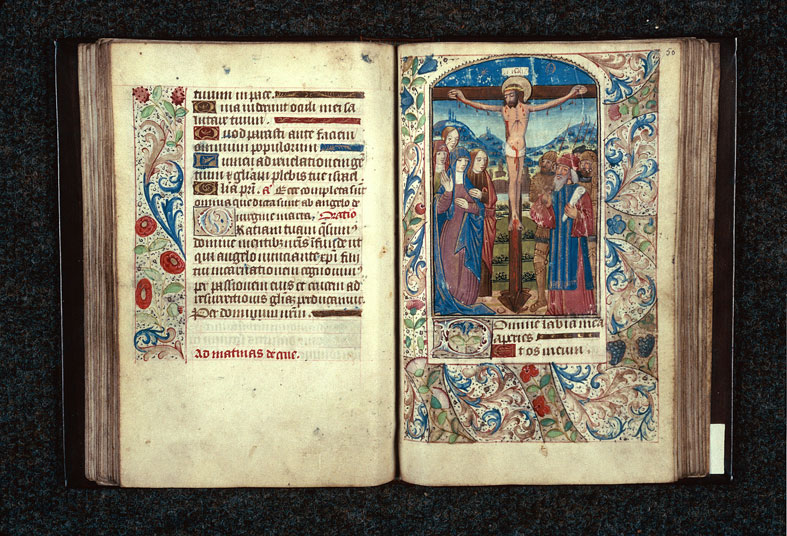 tuum in pace.
Quia viderunt oculi mei sa
lutare tuum.
Quod parasti ante faciem
omnium populorum
Lumen ad revelationem gē
tium & gliam plebis tue israel.
Glia pri. a Et et completa sūt
omnia que dicta sunt ab angelo de
virgine maria, Oratio
Gratiam tuam qsumꝰ
domine mentibꝰ nris īfūde ut
qui angelo nunciante xpi filij
tui incarnationem cognovimꝰ
per passionem eius et crucem ad
resurrectionis gliaz perducamur.
Per dominum nrm.
Ad matinas de cruce.
50
INRI
Domine labia mea
aperies
Et os meum.